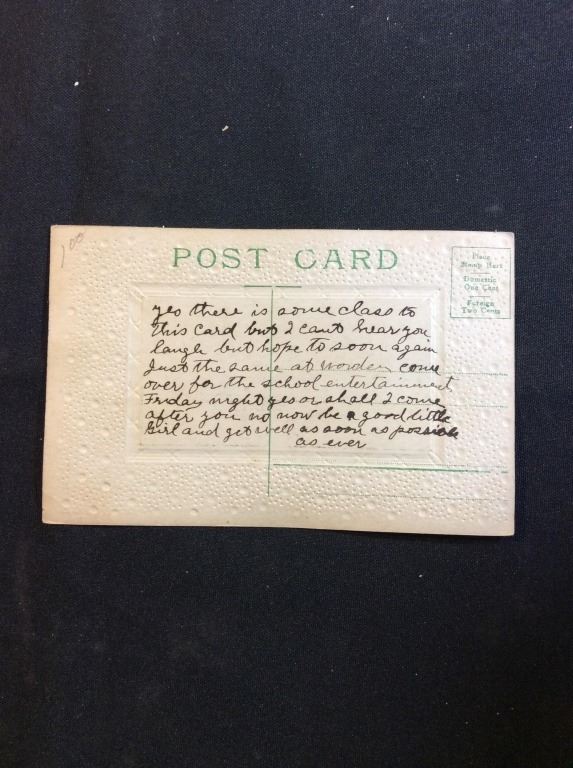 1 00
POST CARD
Place
Stamp Here
Domestic
One Cent
Foreign
Two Cents
yes there is some class to
this card but I cant hear you
laugh but hope to soon again
Just the same at worden come
over for the school entertainment
Friday night yes or shall I come
after you no now be a good little
Girl and get well as soon as possible
as ever